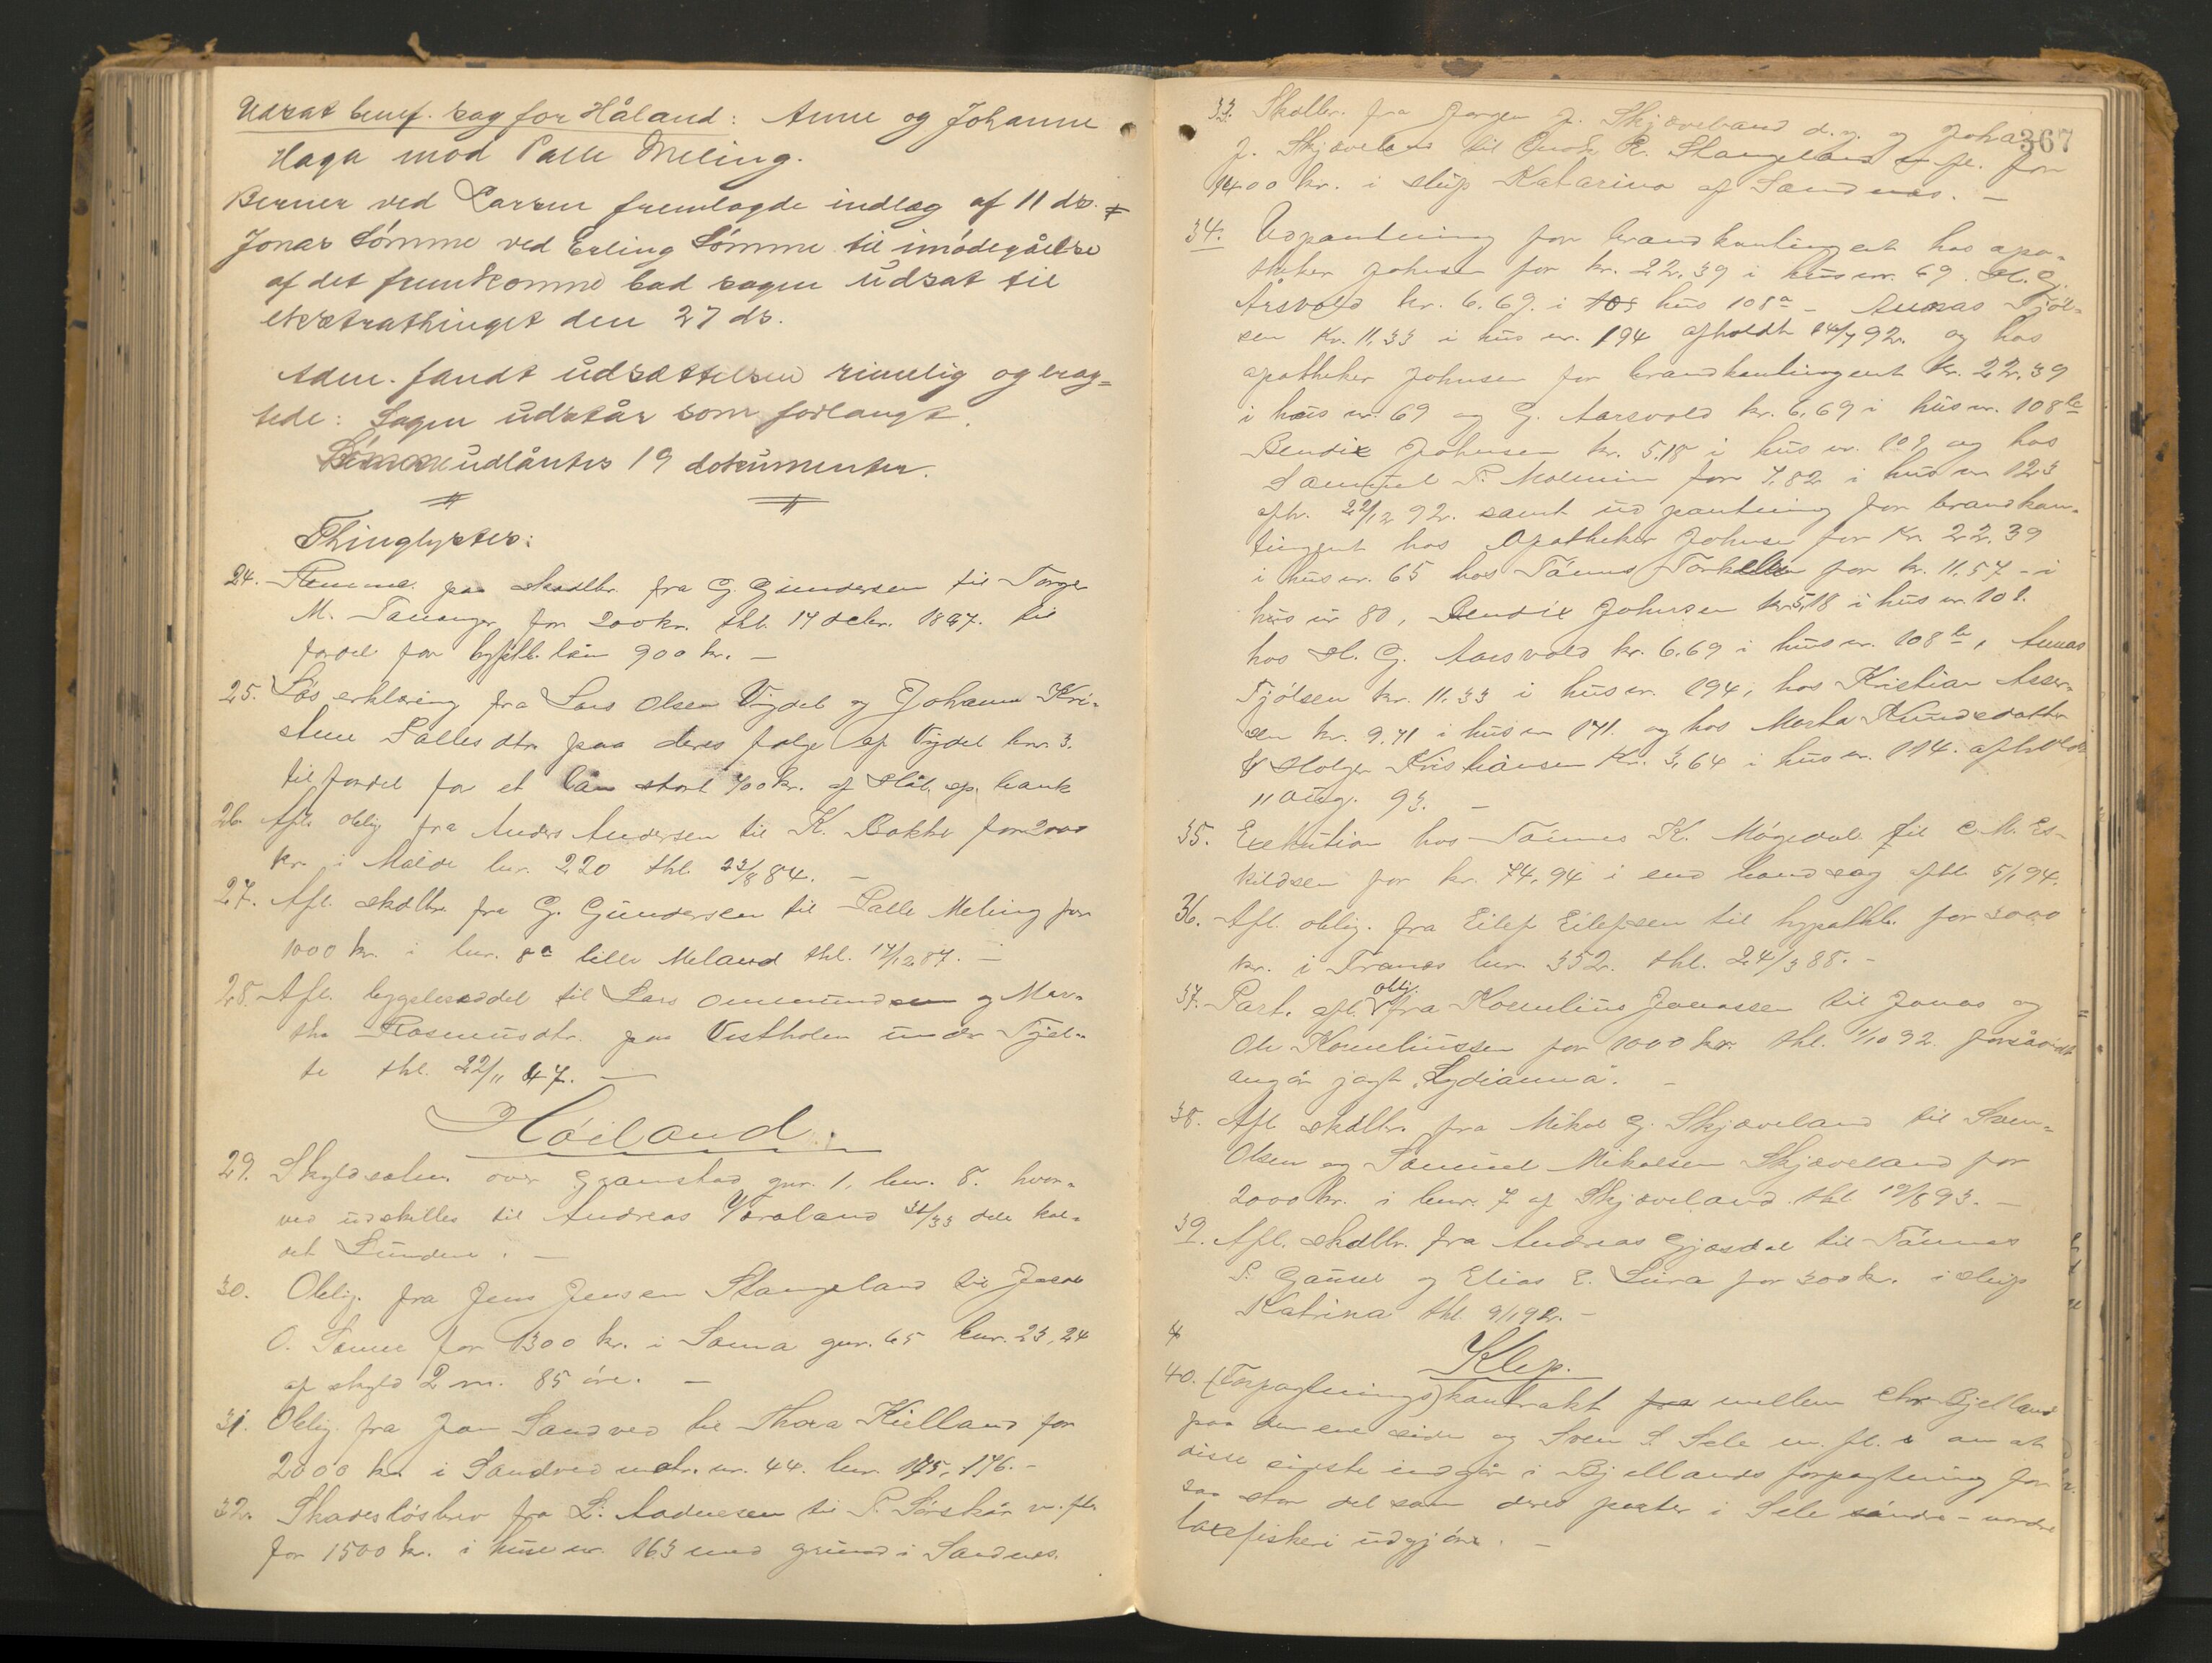 Udsat benef. sag for Håland: Anne og Johanne
Haga mod Palle Meling.
Berner ved Larsen fremlagde indlæg af 11 ds.
Jonas Sømme ved Erling Sømme til imødegåelse
af det fremkomne bad sagen udsat til
ekstrathinget den 27 ds.
Adm. fandt udsættelsen rimelig og erag-
tede: Sagen udstår som forlangt.
udlåntes 19 dokumenter.
Thinglystes:
24. paa skadlbr. fra G. Gundersen til Torger
M. Tananger for 200 kr. thl. 17 decbr. 1887. til
fordel for hypthb. lån 900 kr. —
25. Løs erklæring fra Lars Olsen Vigdel og Johanne Kri-
stine Pallesdtr. paa deres følge af Vigdel bnr. 3.
til fordel for et lån stort 700 kr. af Hål. sp. bank
26. Afl. oblig. fra Anders Andersen til K. Bakke for 2000
kr. i Malde bnr. 220 thl. 23/8 84. —
27. Afl. skdlbr. fra G. Gundersen til Palle Meling for
1000 kr. i bnr. 8a lille Meland thl. 17/12 87. —
28. Afl. bygselseddel til Lars Ommundsen og Mar-
tha Rasmusdtr. paa Vestholen under Tjel-
te thl. 22/11 47. —
Höiland.
29. Skyldseln. over Granstad gnr. 1, bnr. 8. hvor-
ved udskilles til Andreas Voraland 31/33 dele kal-
det Lunden. —
30. Oblig. fra Jens Jensen Stangeland til Jacob
O. Somme for 1300 kr. i Soma gnr. 65 bnr. 23, 24
af skyld 2 m. 85 öre. —
31. Oblig. fra Jan Sandved til Thora Kielland for
2000 kr. i Sandved matr. nr. 44. bnr. 175, 176. —
32. Skadesløsbrev fra L. Aadnesen til P. Sørskår m. fl.
for 1500 kr. i huse nr. 163 med grund i Sandnes.
367
33. Skdlbr. fra Jørgen J. Skjæveland d. y. og Joha
J. Skjæveland til Enok R. Stangeland m. fl. for
1400 kr. i slup Katarina af Sandnes. —
34. Udpantning for brandkontingent hos apo-
theker Johnsen for kr. 22,39 i hus nr. 69. H. G.
Årsvold kr. 6.69. i hus 108a — Aanas Tjöl-
sen kr. 11,33 i hus nr. 194 afholdt 14/7 92. og hos
apotheker Johnsen for brandkontingent kr. 22,39
i hus nr. 69 og G. Aarsvold kr. 6,69 i hus nr. 108b
Bendix Johnsen kr. 5.18 i hus nr. 101 og hos
Samuel P. for 7,82 i hus nr. 123
afh. 22/12 92. samt udpantning for brandkon-
tingent hos Apotheker Johnsen for kr. 22.39
i hus nr. 65 hos Tønnes Torkelsen for kr. 11,57 — i
hus nr 80, Bendix Johnsen kr 5,18 i hus nr 101.
hos H. G. Aarsvold kr. 6.69 i hus nr. 108b,
Tjölsen kr. 11,33 i hus nr. 194, hos Kristian Asser-
sen kr. 9,71 i hus nr 171. og hos Marta Knudsdatter
Holger Kristiansen kr. 3,64 i hus nr. 114. afholdt
11 aug. 93. —
35. Exekution hos Tønnes K. Mögedal til C. M. Es-
kildsen for kr. 74,94 i end hand sag afhl. 5/1 94.
36. Afl. oblig. fra Eilef Eilefsen til hypothb. for 3000
kr. i Tranes bnr. 352. thl. 24/3 88. —
37. Part. afl. oblig. fra Kornelius Jonassen til Jonas og
Ole Korneliussen for 1000 kr. thl. 1/10 92. forsåvidt
angår jagt „Lydianna". —
38. Afl. skdlbr. fra Mikal G. Skjæveland til Sven
Olsen og Samuel Mikalsen Skjæveland for
2000 kr. i bnr. 7 af Skjæveland thl. 19/8 93. —
39. Afl. skdlbr. fra Andreas Gjesdal til Tønnes
P. Gausel og Elias E. Lura for 300 kr. i slup
Katrina thl. 9/1 92. —
Klep.
40. (Forpagtnings)kontrakt mellem Chr. Bjelland
paa den ene side og Sven S. Sele m. fl. om at
disse sidste indgår i Bjellands forpagtning for
saa stor del som deres parter i Sele söndre - nordre
laxefiskeri udgjör. —